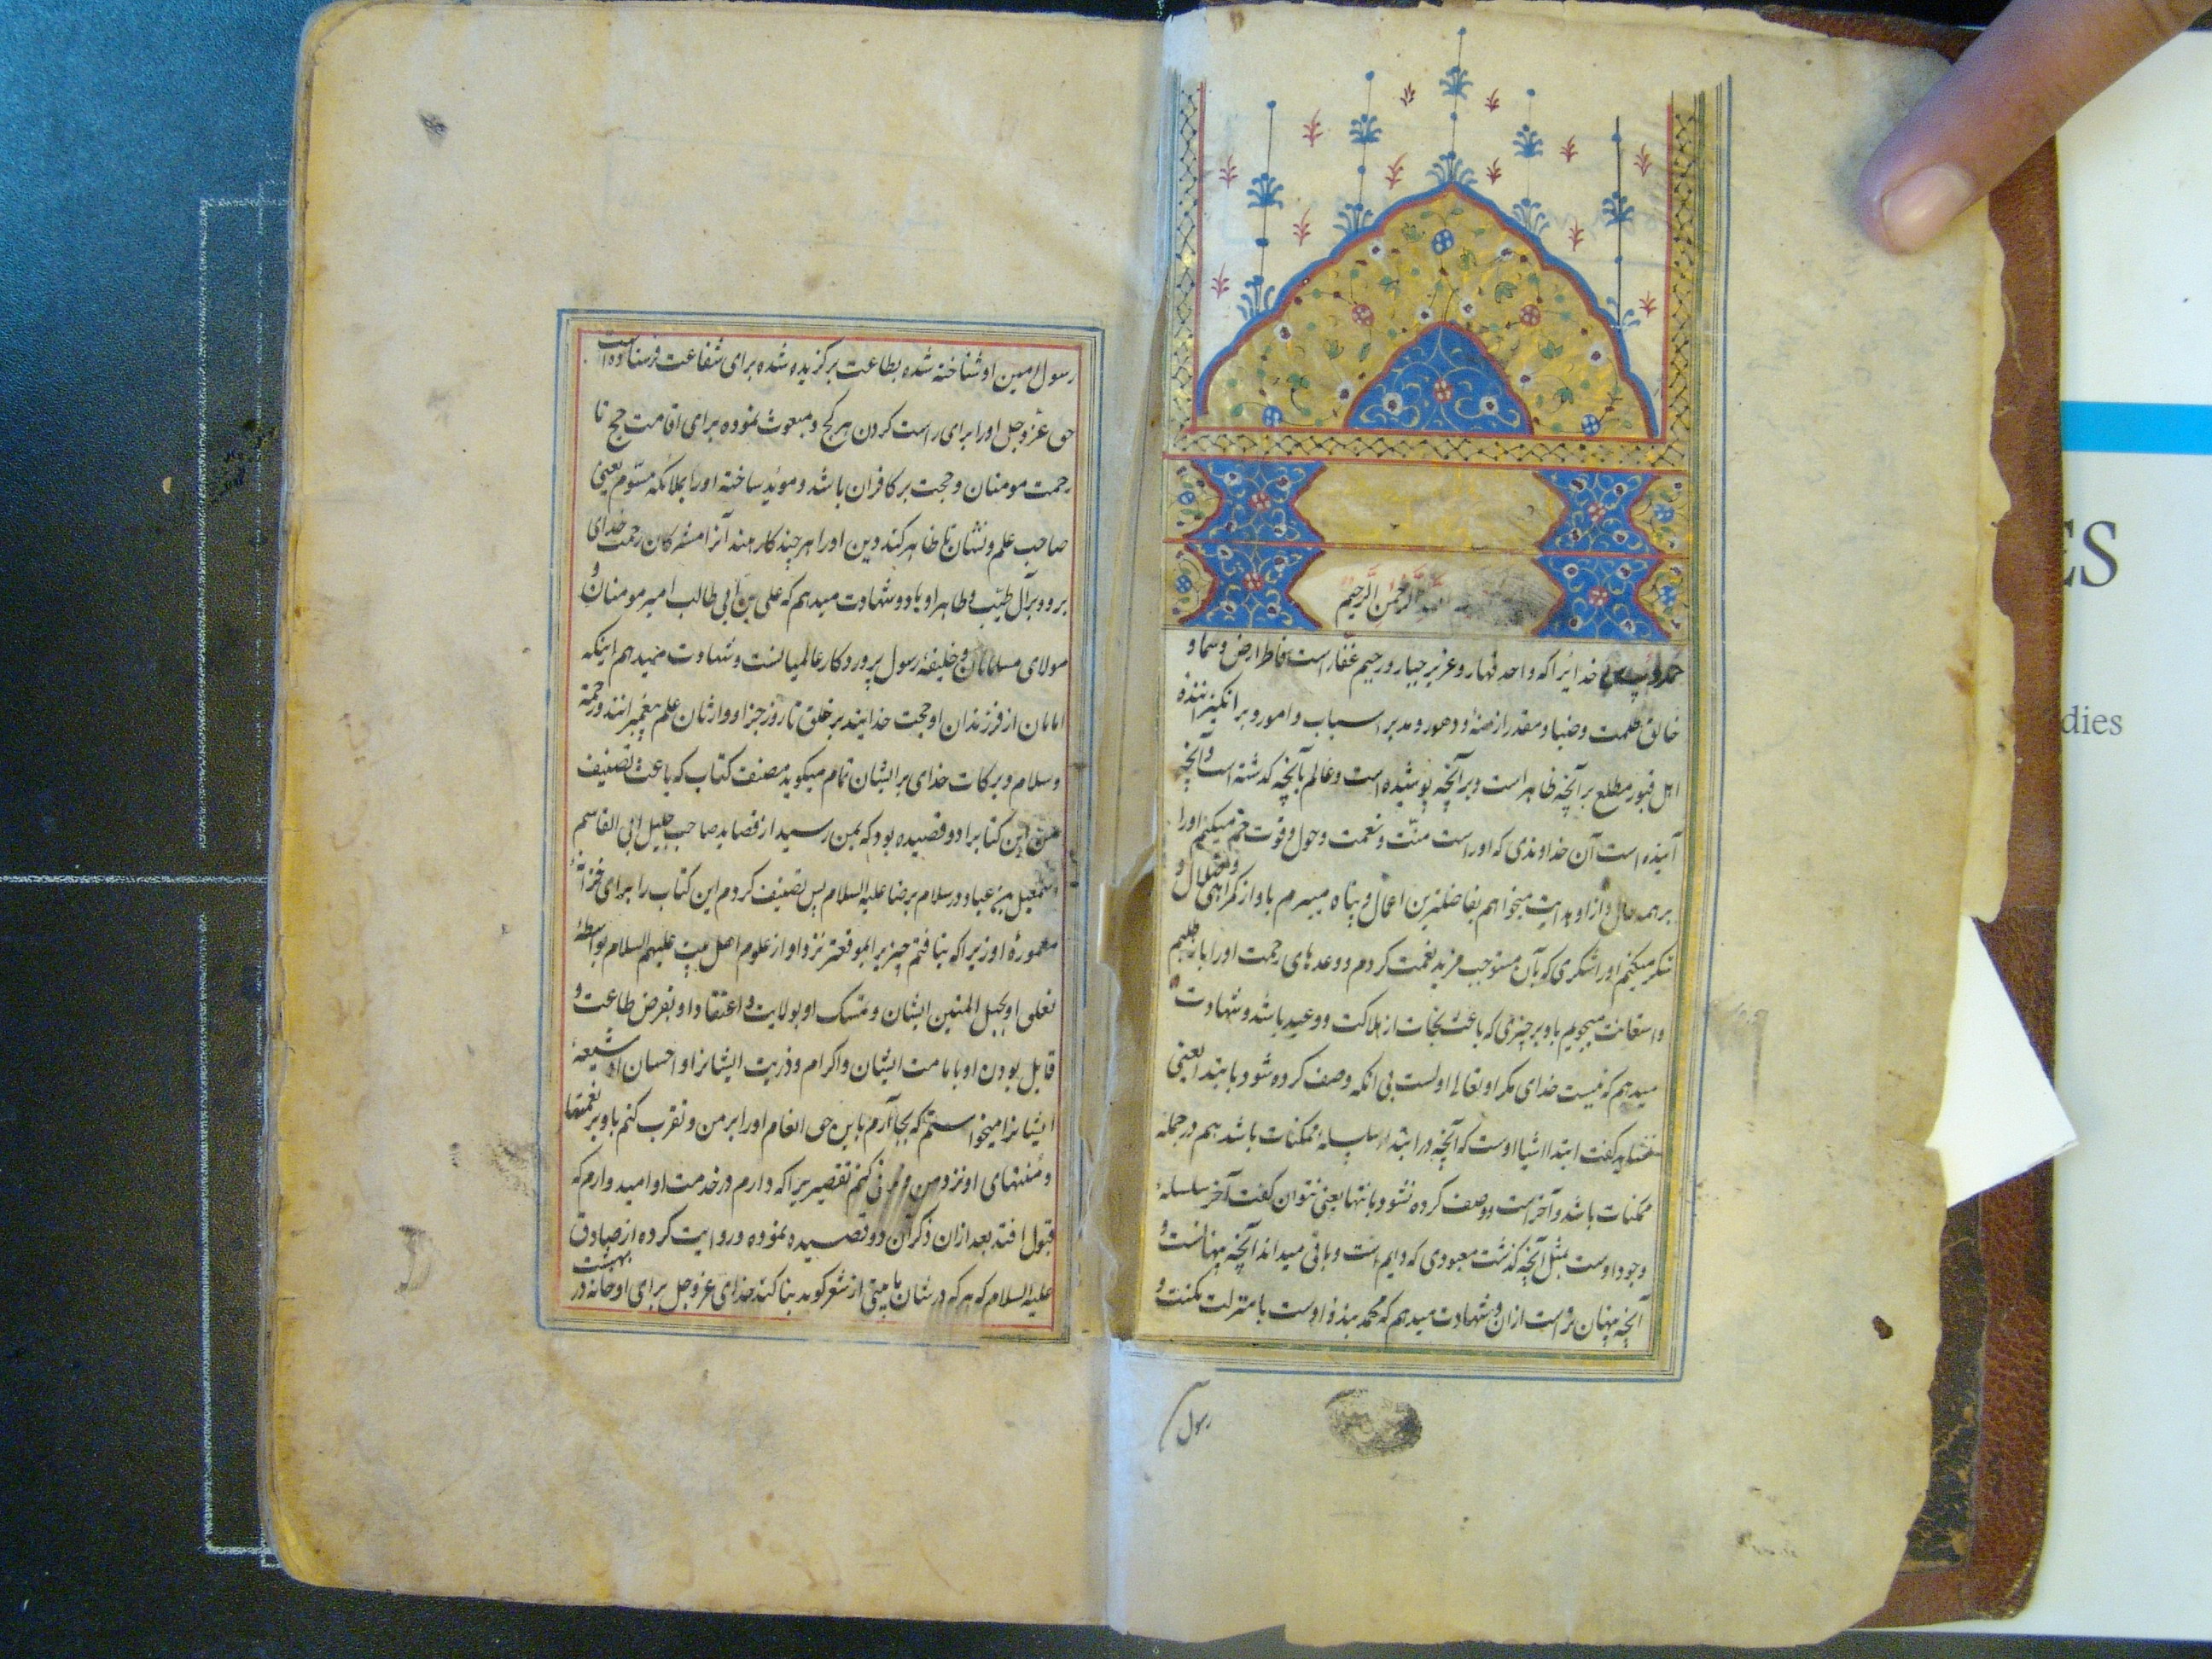 الرحمن الرحيم
خدایرا که واحد قهار و عزیز جبار و رحیم غفار است فاطر ارض و سما و
خالق ظلمت و ضیا و مقدر ازمنه و دهور و مدبر اسباب و امور و برانگیزاننده
اهل قبور مطلع بر آنچه ظاهر است و بر آنچه پوشیده است و عالم بآنچه گذشته است و آنچه
آینده است آن خداوندی که اوراست منّت و نعمت و حول و قوت حمد میکنم اورا
بر همه حال و از او هدایت میخواهم بفاضلترین اعمال و پناه میبرم باو از گمراهی و ضلال و
شکر میکنم اورا شکری که بآن مستوجب مزید نعمت کردم و وعدهای رحمت اورا
و استعانت میجویم باو بر چیزی که باعث نجات از هلاکت و وعید باشد و شهادت
میدهم که نیست خدای مگر او تعالی اولست بی انکه وصف کرده شود بابتدا یعنی
نشاید گفت ابتدا اشیا اوست که آنچه در ابتدا سلسله ممکنات باشد هم در جمله
ممکنات باشد و آخر است و وصف کرده نشود بانتها یعنی نتوان گفت آخر سلسلهٔ
وجود اوست بمثل آنچه گذشت معبودی که دایم است و باقی میداند آنچه پنهانست و
آنچه پنهان تر است ازان و شهادت میدهم که محمد بنده اوست با منزلت مکنت و
رسول
رسول امین او شناخته شده بطاعت برگزیده شده برای شفاعت فرستاده است
حق عز و جل اورا برای راست کردن هر کج و مبعوث نموده برای اقامت حج تا
رحمت مومنان و حجت بر کافران باشد و موئد ساخته اورا بملائکه مسوّم یعنی
صاحب علم و نشان تا ظاهر کند دین اورا هر چند کارهند آنرا مشرکان رحمت خدای
برو و بر آل طیّب و طاهر او باد و شهادت میدهم که علی بن ابی طالب امیر مومنان و
مولای مسلمانان و خلیفهٔ رسول پروردکار عالمیانست و شهادت میدهم اینکه
امامان از فرزندان او حجت خدایند بر خلق تا روز جزا و وارثان علم پیغمبرانند و رحمة
و سلام و برکات خدای بر ایشان تمام میکوید مصنف کتاب که باعث تصنیف
من این کتابرا دو قصیده بود که بمن رسید از قصاید صاحب جلیل ابی القاسم
اسمعیل بن عباد در سلام بر رضا علیه السلام پس تصنیف کردم این کتاب را برای خزانهٔ
معمورهٔ او زیرا که نیافتم چیزیرا نزد او از علوم اهل بیت علیهم السلام بواسطهٔ
تعلق او بحبل المتین ایشان و تمسک او بولایت و اعتقاد او بفرض طاعت و
قایل بودن او بامامت ایشان و اکرام او ذریت ایشانرا و احسان او شیعهٔ
ایشانرا میخواستم که بجا آرم باین حق انعام اورا بر من و تقرب کنم باو بر نعمتها
و منتهای او نزد من و تلافی کنم تقصیریرا که دارم در خدمت او امیدوارم که
قبول افتد بعد ازان ذکر آن دو قصیده نموده و روایت کرده از صادق
علیه السلام که هر که در شان ما بیتی از شعر کوید بنا کند خدای عز و جل برای او خانهٔ در بهشت
ES
dies